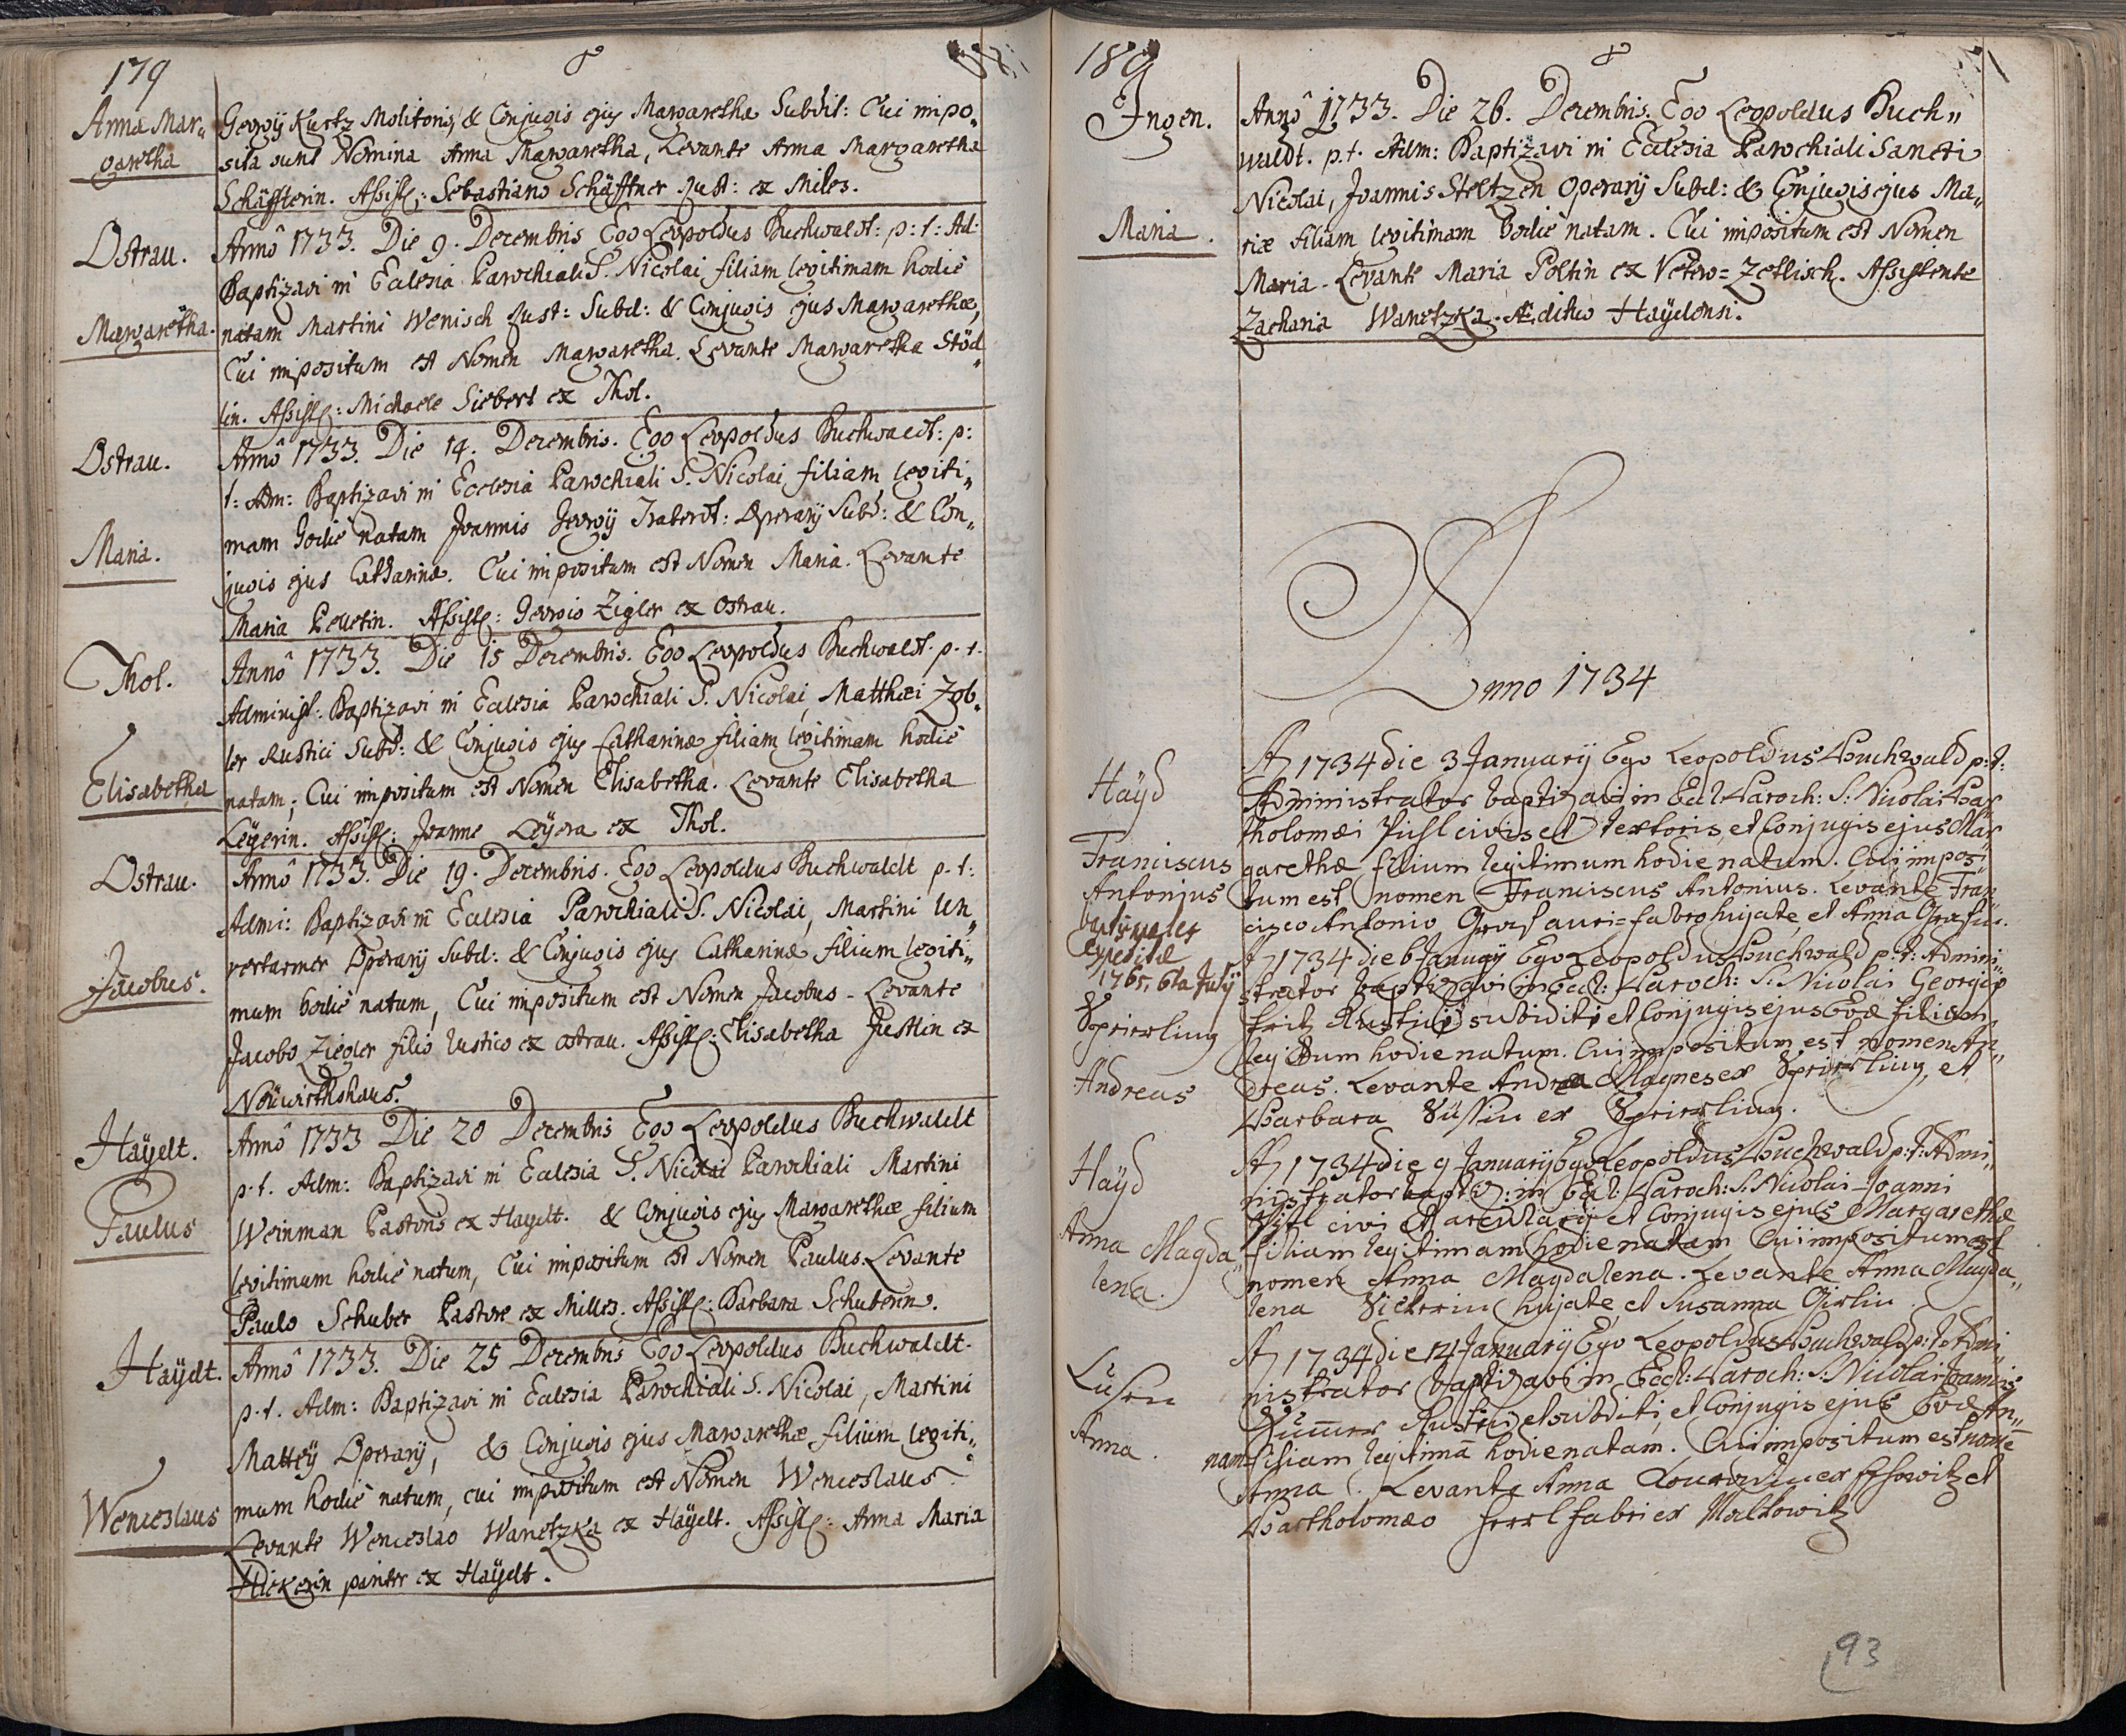 179
Anna Mar„
garetha
Georgij Kurtz Molitoris, & Conjugis ejus Margaretha Subdit: Cui impo„
sita sunt Nomina Anna Margaretha, Levante Anna Margaretha
Schäffterin. Assist: Sebastiano Schäffner Rust: ex Miles.
Ostrau.
Margaretha.
Annô 1733. Die 9. Decembris Ego Leopoldus Buchwaldt: p: t: Ad:
Baptizavi in Eclesia Parochiali S. Nicolai filiam legitimam hodiè
natam Martini Wenisch Rust: Subd: & Conjugis ejus Margarethæ,
Cui impositum est Nomen Margaretha. Levante Margaretha Stöd„
lin. Assist: Michaele Siebert ex Thol.
Ostrau.
Maria.
Annô 1733. Die 14. Decembris. Ego Leopoldus Buchwaldt: p:
t: Adm: Baptizavi in Ecclesia Parochiali S. Nicolai filiam legiti„
mam hodiè natam Joannis Georgij: Operarij Subd: & Con„
jugis ejus Catharinæ. Cui impositum est Nomen Maria. Levante
Maria Pelletin. Assist: Georgio Zigler ex Ostrau.
Thol.
Elisabetha
Annô 1733. Die 15 Decembris. Ego Leopoldus Buchwaldt. p. t.
Administ: Baptizavi in Eclesia Parochiali S. Nicolai, Matthæi Zob„
ler Rustici Subd: & Conjugis ejus Catharinæ filiam legitimam hodiè
natam; Cui impositum est Nomen Elisabetha. Levante Elisabetha
Leÿerin. Assist: Joanne Leÿera ex Thol.
Ostrau.
Jacobus.
Annô 1733. Die 19. Decembris. Ego Leopoldus Buchwaldt p. t:
Admi: Baptizavi in Eclesia Parochiali S. Nicolai, Martini Un„
verfarmer Operarij Subd: & Conjugis ejus Catharinæ filium legiti„
mum hodiè natum, Cui impositum est Nomen Jacobus - Levante
Jacobo Ziegler filio Rustico ex ostrau. Assist: Elisabetha Justlin ex
Neüwirthshaus.
Haÿdt.
Paulus
Annô 1733 Die 20 Decembris Ego Leopoldus Buchwaldt
p. t. Adm: Baptizavi in Eclesia S. Nicolai Parochiali Martini
Weinman Pastoris ex Haydt. & Conjugis ejus Margarethæ filium
legitimum hodiè natum, Cui impositum est Nomen Paulus. Levante
Paulo Schuber Pastore ex Milles. Assist: Barbara Schuberin.
Haÿdt.
Wenceslaus
Annô 1733. Die 25 Decembris Ego Leopoldus Buchwaldt.
p. t. Adm: Baptizavi in Eclesia Parochiali S. Nicolai, Martini
Mattej Operarij, & Conjugis ejus Margarethæ filium legiti„
mum hodiè natum, cui impositum est Nomen Wenceslaus
Levante Wenceslao Wanetzka ex Haÿdt. Assist: Anna Maria
Hickerin pariter ex Haÿdt.
180
Ingen.
Maria.
Annô 1733. Die 26. Decembris. Ego Leopoldus Buch„
waldt. p. t. Adm: Baptizavi in Ecclesia Parochiali Sancti
Nicolai, Joannis Steltzen Operarij Subd: & Conjugis ejus Ma„
riæ filiam legitimam hodiè natam. Cui impositum est Nomen
Maria. Levante Maria Poltin ex Vetero=Zetlisch. Assistente
Zacharia Wanetzka Ædituo Haÿdensi.
Anno 1734
Haÿd
Franciscus
Antonius
baptismales
expeditæ
1765, 6ta July
A 1734 die 3 January Ego Leopoldus Buchwald p: t:
Administrator baptizavi in Eccl: Paroch: S: Nicolai Bar„
tholomæi Pichl civis et textoris, et Conjugis ejus Mar„
garethæ filium legitimum hodie natum. Cui imposi„
tum est nomen Franciscus Antonius. Levante Fran„
cisco Antonio Graf auri=fabro hujate, et Anna Grafin.
Sprierling
Andreas
A 1734 die 6 January Ego Leopoldus Buchwald p: t: Admini„
strator baptizavi in Eccl: Paroch: S: Nicolai Georgij
Fritz Rustici subditi et Conjugis ejus Evæ filium
legitum hodie natum. Cui impositum est nomen An„
dreas. Levante Andrea Magnes ex Sprierling, et
Barbara Süssin ex Sprierling.
Haÿd
Anna Magda„
lena.
A 1734 die 9 January Ego Leopoldus Buchwald p: t: Admi„
nistrator baptiz: in Eccl: Paroch: S: Nicolai Joanni
Pichl civi et arcularij et Conjugis ejus Margarethæ
filiam legitimam hodie natam Cui impositum est
nomen Anna Magdalena. Levante Anna Magda„
lena hujate, et Susanna Girlin.
Lusen
Anna.
A 1734 die 14 January Ego Leopoldus Buchwald p: t: Admi„
nistrator baptizavi in Eccl: Paroch: S: Nicolai Joannis
Rustici et subditi, et Conjugis ejus Evæ An„
nam filiam legitimã hodie natam. Cui impositum est nomē
Anna. Levante Anna ex et
Bartholomæo Herrl fabri ex Malkowitz
93